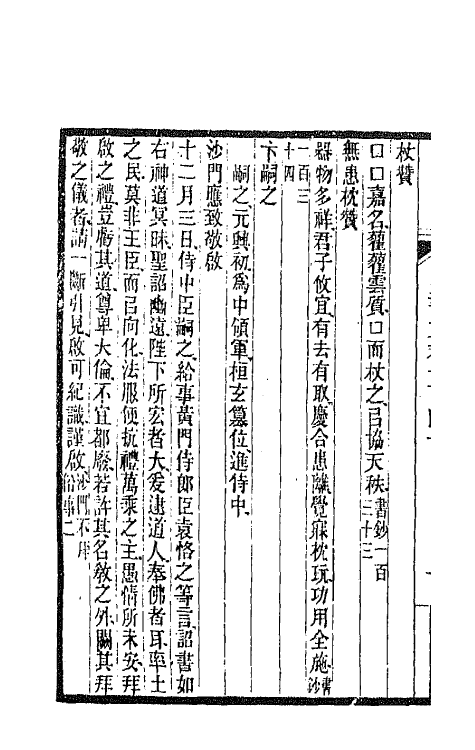 杖贊
□□嘉名蘿蘿雲質□而杖之㠯協天秩書鈔一百三十三
無患枕贊
器物多祥君子攸宜有去有取慶合患離覺寐枕玩功用全施書鈔
一百三
十四
卞嗣之
嗣之元興初爲中領軍桓玄篡位進侍中
沙門應致敬啟
十二月三日侍中臣嗣之給事黃門侍郎臣袁恪之等言詔書如
右神道冥昧聖詔幽遠陛下所宏者大爰逮道人奉佛者耳率土
之民莫非王臣而㠯向化法服便抗禮萬乘之主愚情所未安拜
啟之禮豈虧其道尊卑大倫不宜都廢若許其名敎之外闕其拜
敬之儀者請一斷引見啟可紀識謹啟沙門不拜俗事二